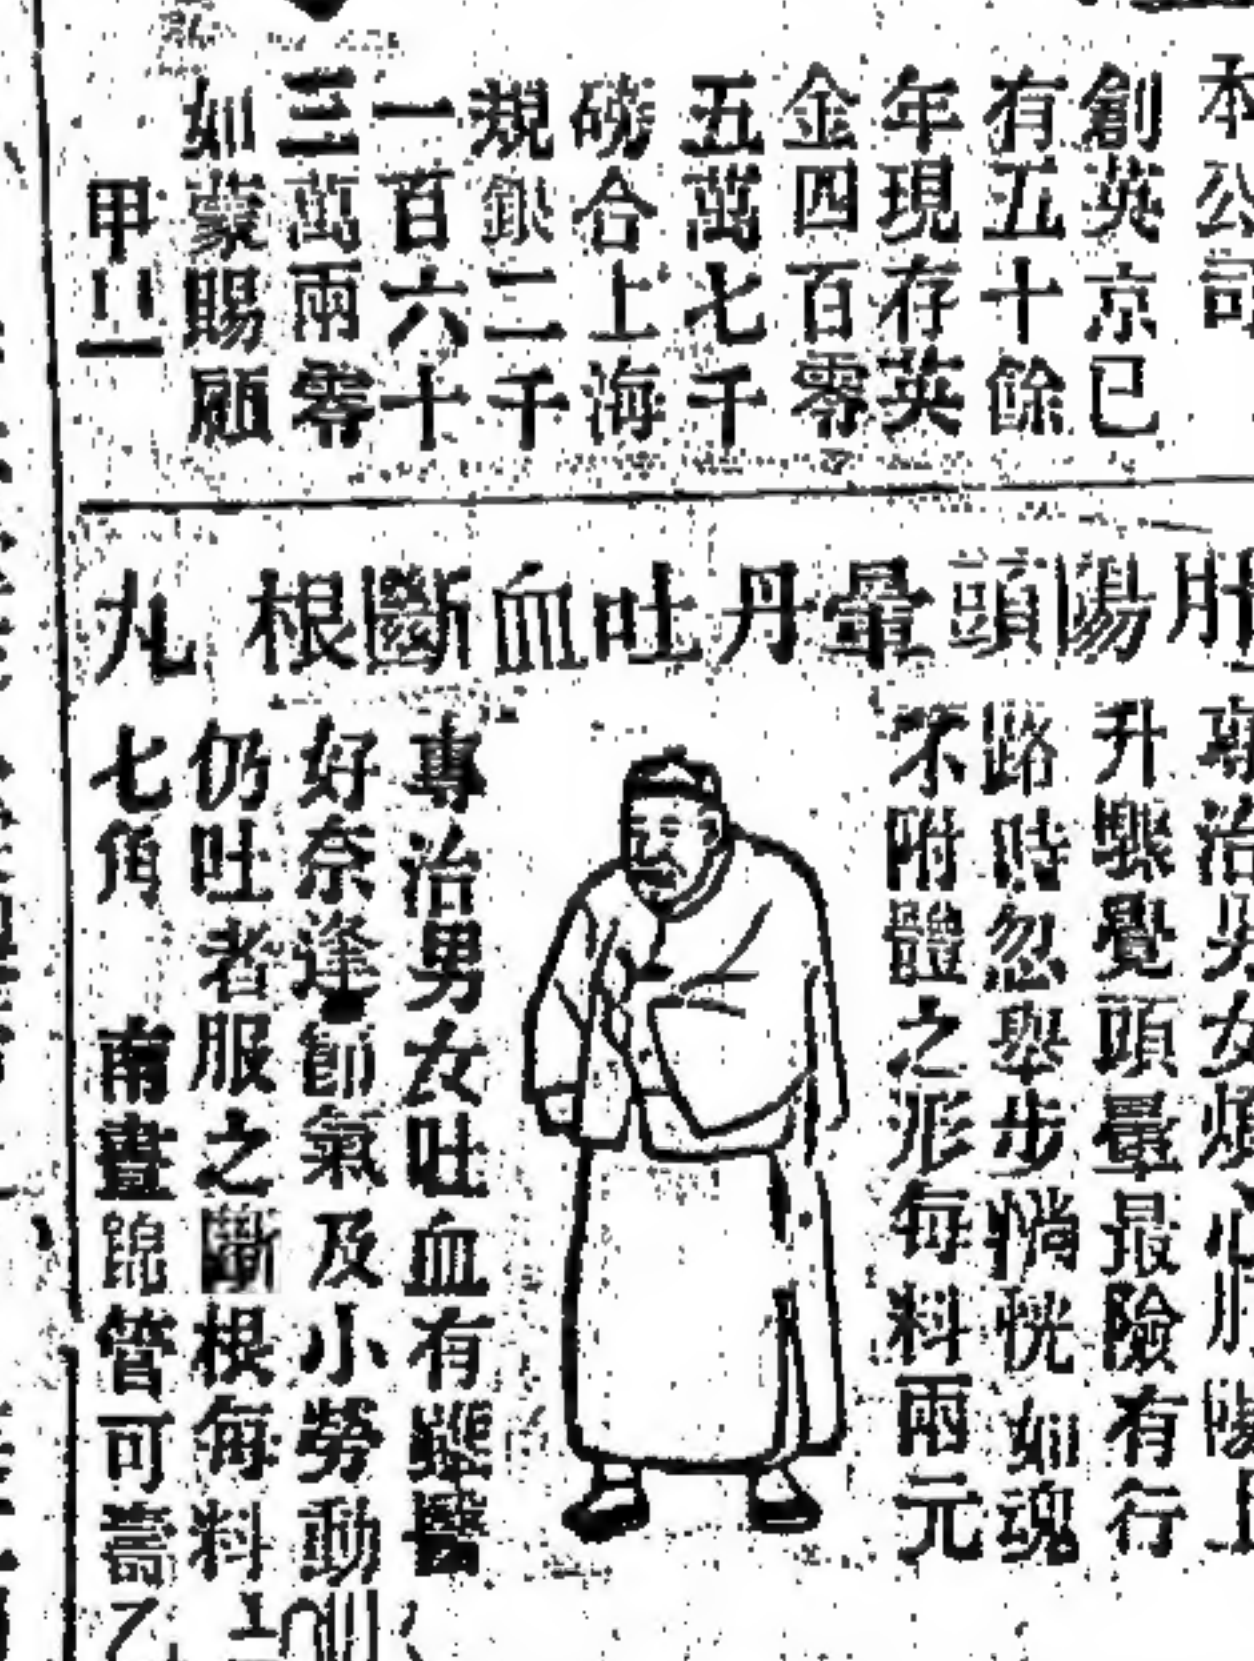 本公司
創英京已
有五十餘
年現存英
金四百零
五萬七千
磅合上海
規銀二千
一百六十
三萬兩零
如蒙賜顧
甲
肝陽頭暈丹吐血斷根丸
專治男女煩心肝陽上
升驟覺頭暈最險有行
路時忽舉步惝恍如魂
不附體之形每料兩元
專治男女吐血有雖醫
好奈逢節氣及小勞動
仍吐者服之斷根每料
七角 南晝錦管可壽